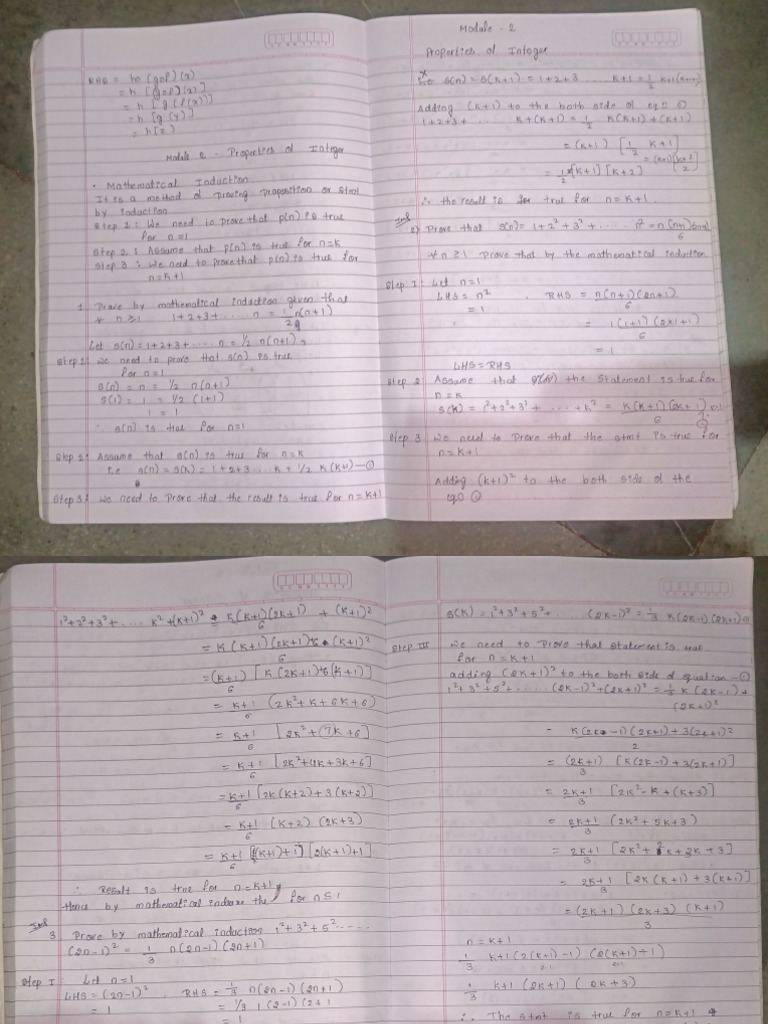 RHS = ho (gof) (x)
= h [(gof) (x)]
= h [g (f(x))]
= h [g (y)]
= h(z)
Module 2 - Properties of Integer
• Mathematical Induction
It is a method of proving proposition or stmt
by induction
Step 1 : We need to prove that p(n) is true
for n=1
Step 2 : Assume that p(n) is true for n=k
Step 3 : We need to prove that p(n) is true for
n=k+1
1. Prove by mathematical induction given that
∀ n≥1 1+2+3+ ..... n = 1/2 n(n+1)
Let s(n) = 1+2+3+ ..... n = 1/2 n(n+1)
Step 1: We need to prove that s(n) is true
for n=1
s(n) = n = 1/2 n(n+1)
s(1) = 1 = 1/2 (1+1)
1 = 1
∴ s(n) is true for n=1
Step 2: Assume that s(n) is true for n=k
i.e s(n) = s(k) = 1+2+3 ... k = 1/2 k(k+1) —①
Step 3: We need to prove that the result is true for n=k+1
Module - 2
Properties of Integer
s(n) = s(k+1) = 1+2+3 .... k+1 = 1/2 k+1
Adding (k+1) to the both side of eqn ①
1+2+3+ ..... k+(k+1) = 1/2 k(k+1) + (k+1)
= (k+1) [1/2 k+1]
= (k+1) [k+2/2]
= 1/2 [k+1] [k+2]
∴ the result is true for n=k+1.
Imp
2) Prove that s(n) = 1+2²+3²+ ..... n² = n(n+1)(2n+1)/6
∀ n≥1 prove that by the mathematical induction
Step I : Let n=1
LHS = n² , RHS = n(n+1)(2n+1)/6
= 1 = 1(1+1)(2×1+1)/6
= 1
LHS = RHS
Step 2 Assume that the statement is true for
n=k
s(k) = 1²+2²+3²+ ..... +k² = k(k+1)(2k+1)/6
Step 3 We need to prove that the stmt is true for
n=k+1
Adding (k+1)² to the both side of the
eqn ①
1²+2²+3²+ .... k²+(k+1)² = k(k+1)(2k+1)/6 + (k+1)²
= k(k+1)(2k+1)+6(k+1)²/6
= (k+1)/6 [k(2k+1)+6(k+1)]
= k+1/6 (2k²+k+6k+6)
= k+1/6 [2k²+7k+6]
= k+1/6 [2k²+4k+3k+6]
= k+1/6 [2k(k+2)+3(k+2)]
= k+1/6 (k+2) (2k+3)
= k+1/6 [(k+1)+1] [2(k+1)+1]
∴ Result is true for n=k+1
Hence by mathematical the for n≤1
Imp
3 Prove by mathematical induction 1²+3²+5² .....
(2n-1)² = 1/3 n(2n-1) (2n+1)
Step I : Let n=1
LHS = (2n-1)² , RHS = 1/3 n(2n-1)(2n+1)
= 1 = 1/3 1(2-1)(2+1
= 1
s(k) = 1²+3²+5²+ ..... (2k-1)² = 1/3 k(2k-1)(2k+1)
Step III We need to prove that statement is true
for n=k+1
adding (2k+1)² to the both side of equation —①
1²+3²+5²+ ..... (2k-1)²+(2k+1)² = 1/3 k(2k-1)+
(2k+1)²
= k(2k-1)(2k+1)+3(2k+1)²/2
= (2k+1)/3 [k(2k-1)+3(2k+1)]
= 2k+1/3 [2k²-k+(k+3)]
= 2k+1/3 (2k²+5k+3)
= 2k+1/3 [2k²+2k+3k+3]
= 2k+1/3 [2k(k+1)+3(k+1)]
= (2k+1)(2k+3)(k+1)/3
n=k+1
1/3 k+1(2(k+1)-1) (2(k+1)+1)
1/3 k+1 (2k+1) (2k+3)
∴ The stmt is true for n=k+1